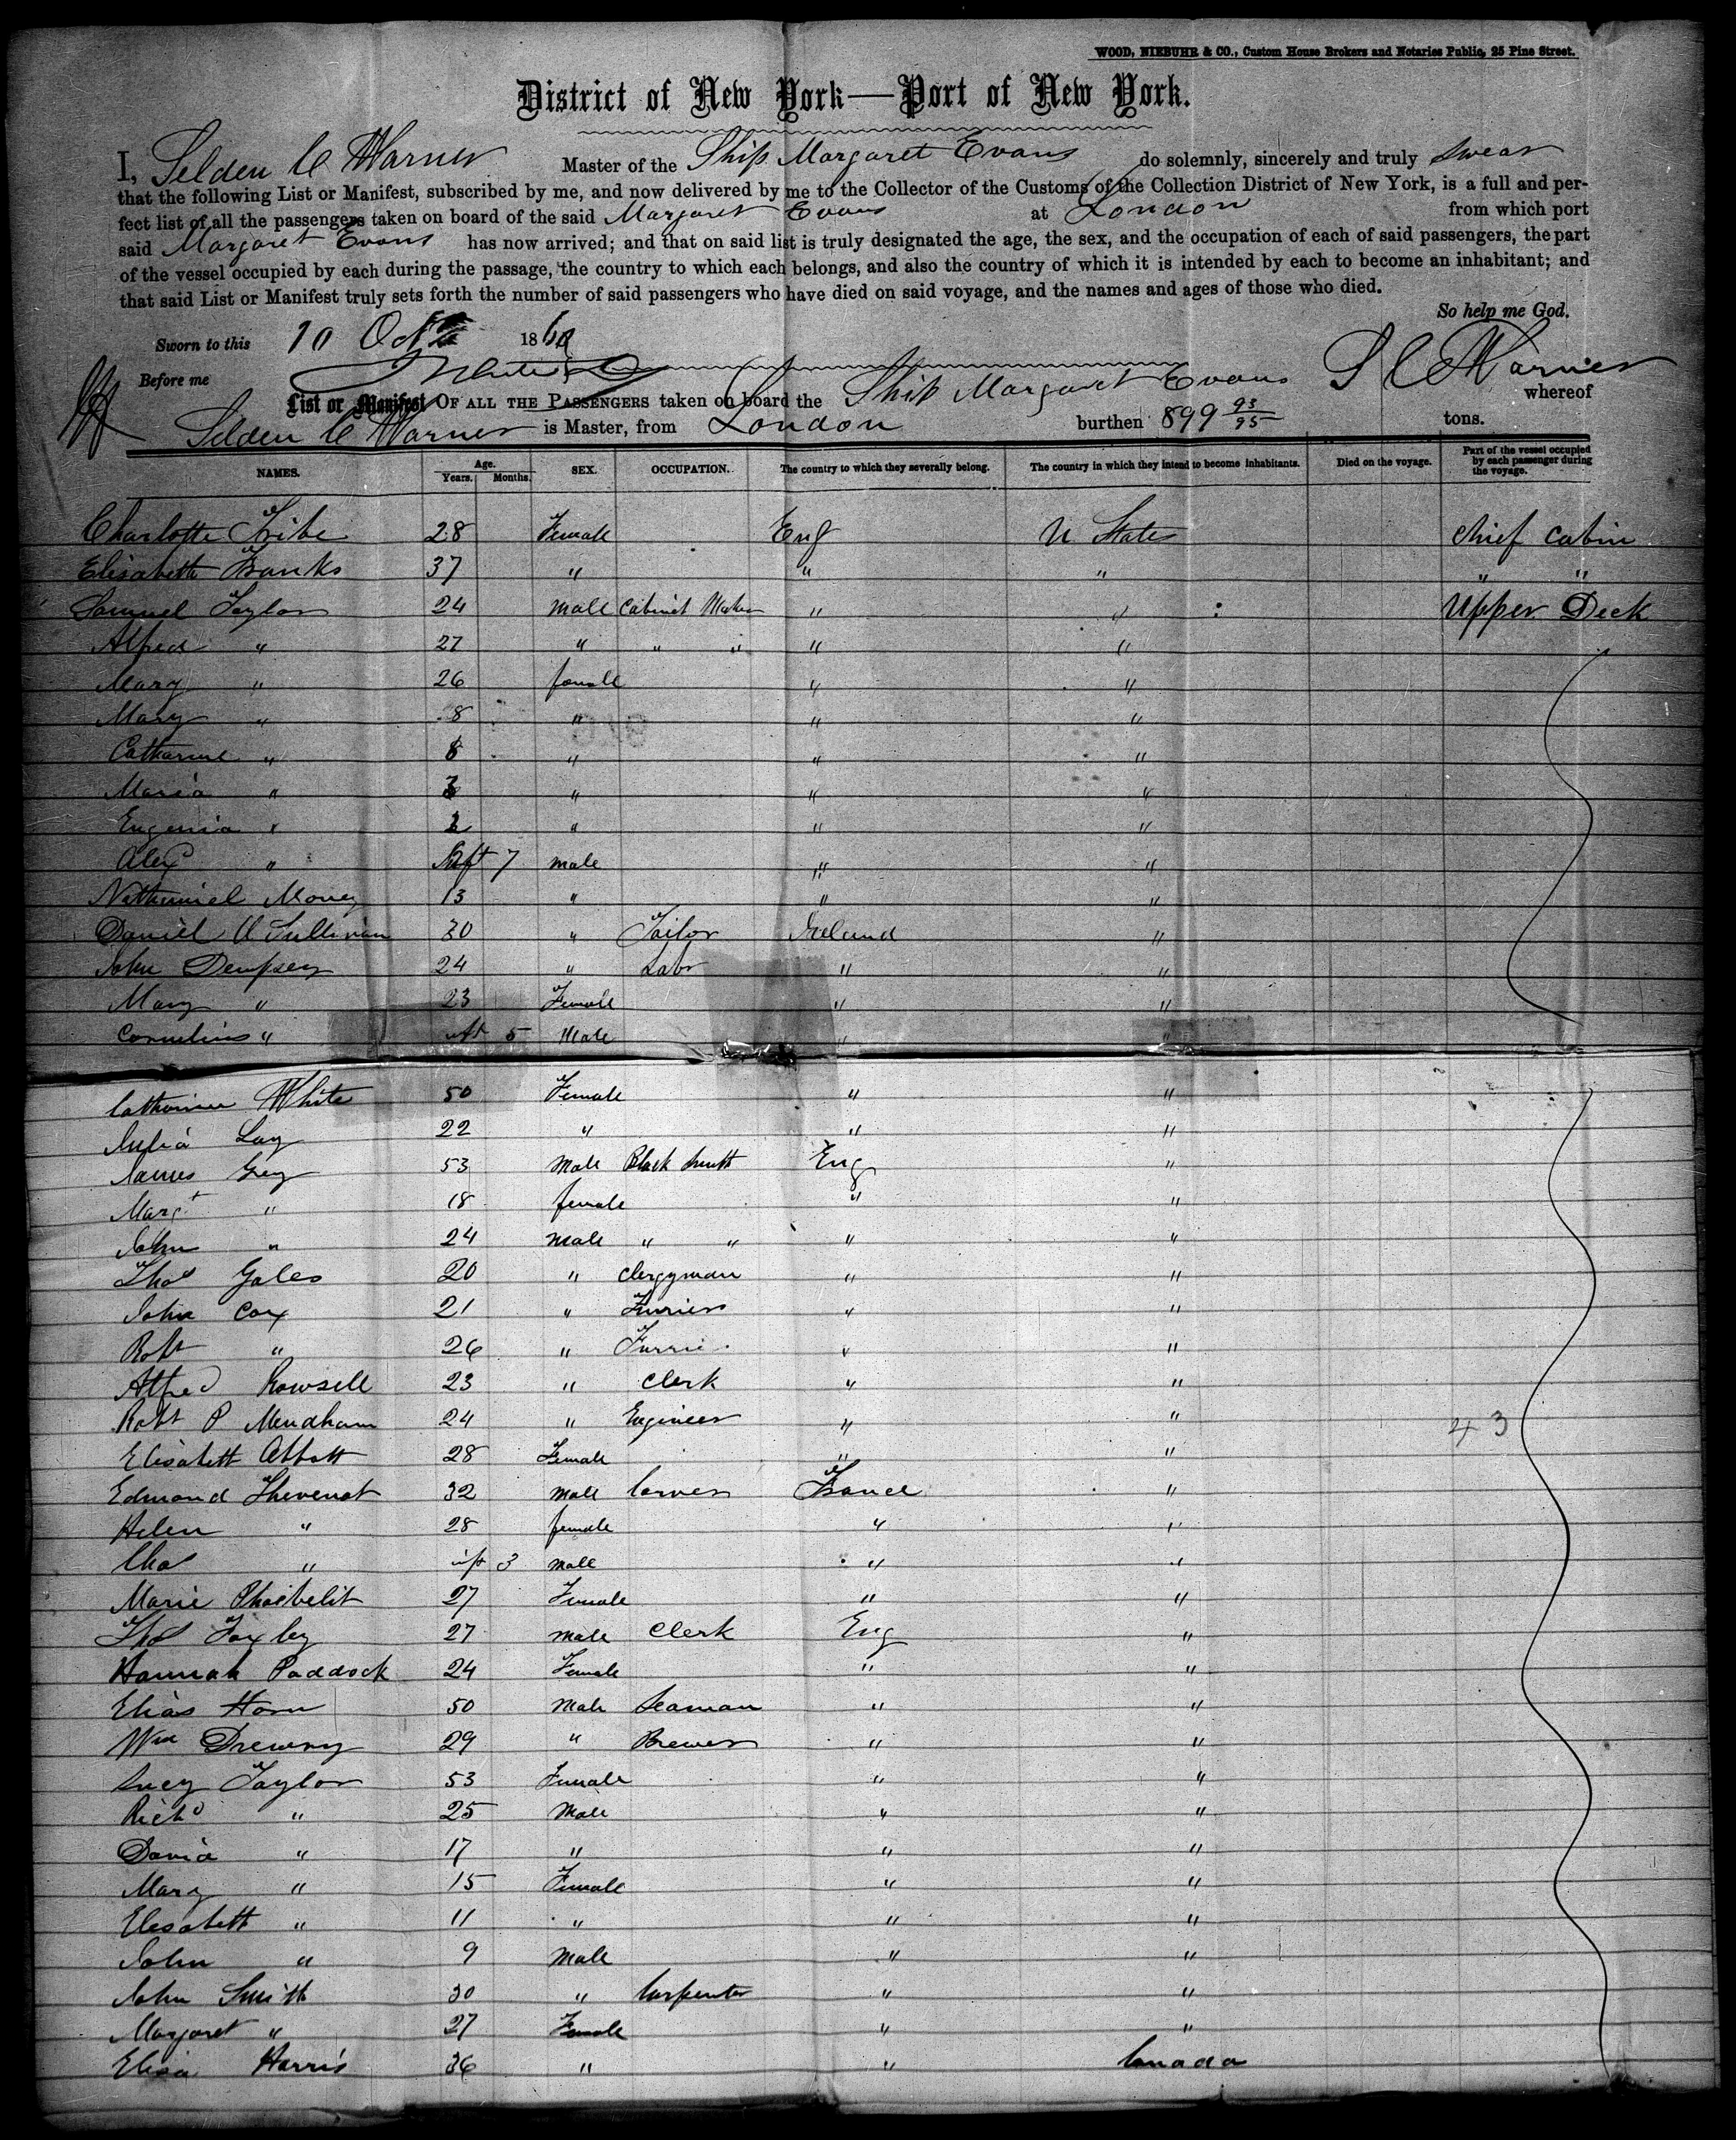 WOOD, NIEBUHR & CO., Custom House Brokers and Notaries Public, 25 Pine Street.
District of New York—Port of New York.
I, Selden C Warner Master of the Ship Margaret Evans do solemnly, sincerely and truly swear
that the following List or Manifest, subscribed by me, and now delivered by me to the Collector of the Customs of the Collection District of New York, is a full and per-
fect list of all the passengers taken on board of the said Margaret Evans at London from which port
said Margaret Evans has now arrived; and that on said list is truly designated the age, the sex, and the occupation of each of said passengers, the part
of the vessel occupied by each during the passage, the country to which each belongs, and also the country of which it is intended by each to become an inhabitant; and
that said List or Manifest truly sets forth the number of said passengers who have died on said voyage, and the names and ages of those who died.
So help me God.
Sworn to this 10 Oct 1860
Before me S C Warner
List or Manifest OF ALL THE PASSENGERS taken on board the Ship Margaret Evans whereof
Selden C Warner is Master, from London burthen 899 93/95 tons.
NAMES. Age. Years. Months. SEX. OCCUPATION. The country to which they severally belong. The country in which they intend to become inhabitants. Died on the voyage. Part of the vessel occupied by each passenger during the voyage.
Charlotte Tribe 28 Female Eng U States chief cabin
Elisabeth Banks 37 " " " " "
Samuel Taylor 24 male Cabinet Maker " " Upper Deck
Alfred " 27 " " " " "
Mary " 26 female " "
Mary " 8 " " "
Catharine " 6 " " "
Maria " 3 " " "
Eugenia " 2 " " "
Alexr " Inft 7 male " "
Nathaniel Money 13 " " "
Daniel O Sullivan 30 " Tailor Ireland "
John Dempsey 24 " Labr " "
Mary " 23 Female " "
Cornelius " inft 5 Male " "
Catharine White 50 Female " "
Julia Lay 22 " " "
James Grey 53 Male Black Smith Eng "
Margt " 18 female " "
John " 24 male " " " "
Thos Gales 20 " Clergyman " "
John Cox 21 " Furrier " "
Robt " 26 " Furrie " "
Alfred Rowsell 23 " Clerk " "
Robt P Mendham 24 " Engineer " " 43
Elisabeth Abbott 28 Female " "
Edmond Thevenot 32 male Carver France "
Helen " 28 female " "
Chas " inft 3 male " "
Marie 27 Female " "
Thos Foxley 27 male Clerk Eng "
Hannah Paddock 24 Female " "
Elias Horn 50 Male Seaman " "
Wm Drewry 29 " Brewer " "
Lucy Taylor 53 Female " "
Richd " 25 Male " "
David " 17 " " "
Mary " 15 Female " "
Elesabeth " 11 " " "
John " 9 Male " "
John Smith 30 " Carpenter " "
Margaret " 27 Female " "
Elisa Harris 36 " " Canada